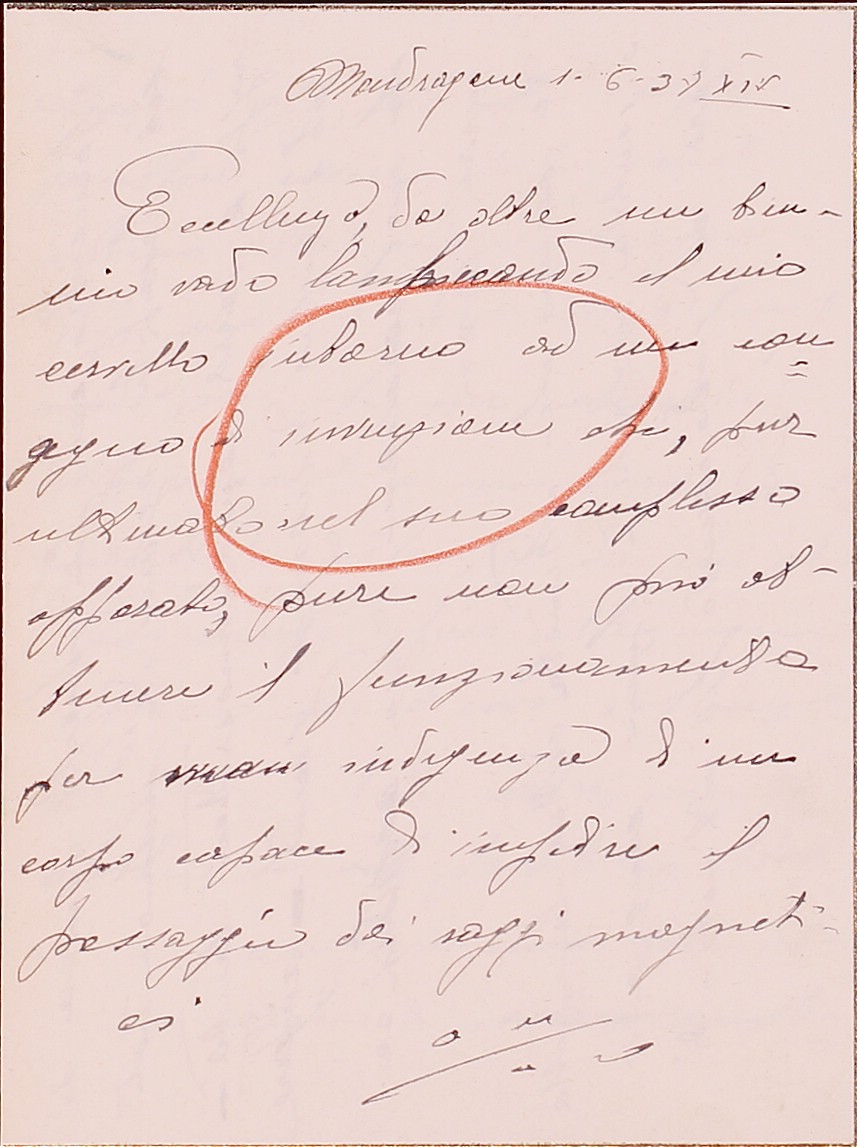 Mondragone 1-6-37 XIV
Eccellenza, da oltre un bien-
nio vado lambiccando il mio
cervello intorno ad un con=
gegno di invenzione che, pur
ultimato nel suo complesso
apparato, pure non può ot-
tenere il funzionamento
per indigenza di un
corpo capace di impedire il
passaggio dei raggi magneti-
ci